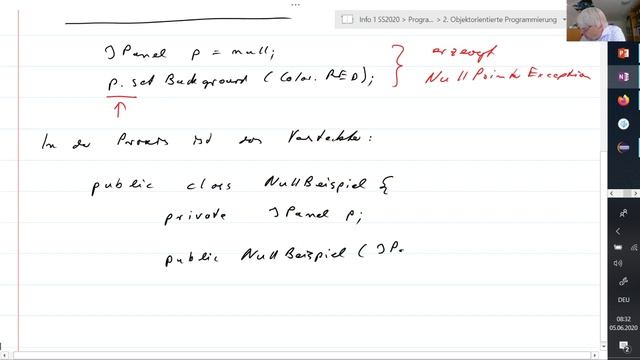 Info 1 SS2020 > Progra... > 2. Objektorientierte Programmierung
JPanel p = null;
erzeugt
p.setBackground (Color.RED);
NullPointerException
In der Praxis ist das versteckter:
public class NullBeispiel {
private JPanel p;
public NullBeispiel ( JP.
DEU
08:32
05.06.2020
2